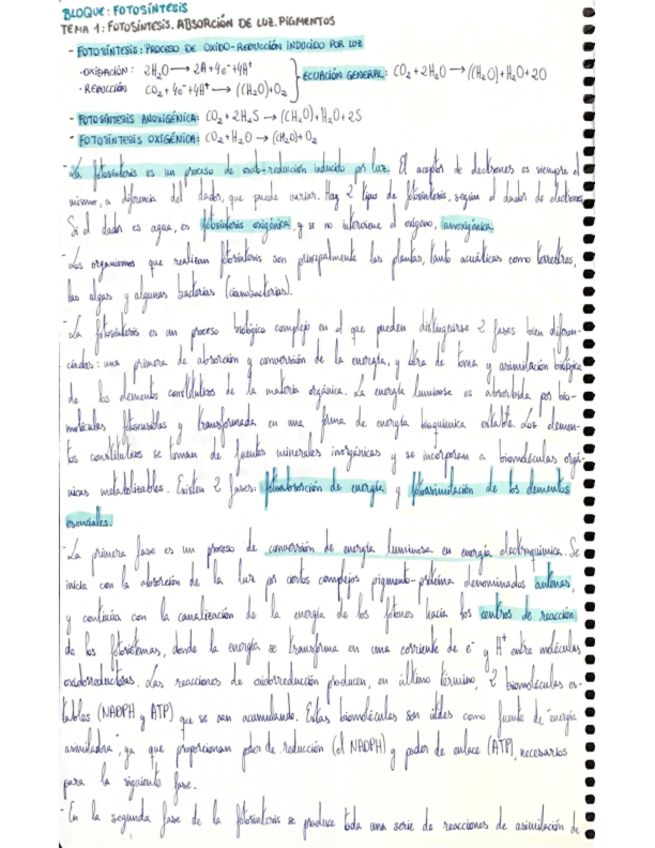 BLOQUE: FOTOSÍNTESIS
TEMA 1: FOTOSÍNTESIS. ABSORCIÓN DE LUZ. PIGMENTOS
- FOTOSÍNTESIS: PROCESO DE OXIDO-REDUCCIÓN INDUCIDO POR LUZ
· OXIDACIÓN: 2H₂O → 2A + 4e⁻ + 4H⁺
· REDUCCIÓN CO₂ + 4e⁻ + 4H⁺ → ((H₂O) + O₂ } ECUACIÓN GENERAL: CO₂ + 2H₂O → [(H₂O] + H₂O + 2O
- FOTOSÍNTESIS ANOXIGÉNICA: CO₂ + 2H₂S → (CH₂O) + H₂O + 2S
- FOTOSÍNTESIS OXIGÉNICA: CO₂ + H₂O → (CH₂O) + O₂
- La fotosíntesis es un proceso de oxido-reducción inducido por luz. El aceptor de electrones es siempre el
mismo, a diferencia del dador, que puede variar. Hay 2 tipos de fotosíntesis, según el dador de electrones.
Si el dador es agua, es fotosíntesis oxigénica, y si no interviene el oxígeno, anoxigénica.
- Los organismos que realizan fotosíntesis son principalmente las plantas, tanto acuáticas como terrestres,
las algas y algunas bacterias (cianobacterias).
- La fotosíntesis es un proceso biológico complejo en el que pueden distinguirse 2 fases bien diferen-
ciadas: una primera de absorción y conversión de la energía, y otra de toma y asimilación biológica
de los elementos constitutivos de la materia orgánica. La energía luminosa es absorbida por bio-
moléculas fotosensibles y transformada en una forma de energía bioquímica estable. Los elemen-
tos constitutivos se toman de fuentes minerales inorgánicas y se incorporan a biomoléculas orgá-
nicas metabolizables. Existen 2 fases: fotoabsorción de energía y fotoasimilación de los elementos
esenciales.
- La primera fase es un proceso de conversión de energía luminosa en energía electroquímica. Se
inicia con la absorción de la luz por ciertos complejos pigmento-proteína denominados antenas,
y continúa con la canalización de la energía de los fotones hacia los centros de reacción
de los fotosistemas, donde la energía se transforma en una corriente de e⁻ y H⁺ entre moléculas
oxidorreductoras. Las reacciones de oxidorreducción producen, en último término, 2 biomoléculas es-
tables (NADPH y ATP) que se van acumulando. Estas biomoléculas son útiles como fuente de "energía
asimiladora", ya que proporcionan poder de reducción (el NADPH) y poder de enlace (ATP), necesarios
para la siguiente fase.
- En la segunda fase de la fotosíntesis se produce toda una serie de reacciones de asimilación de